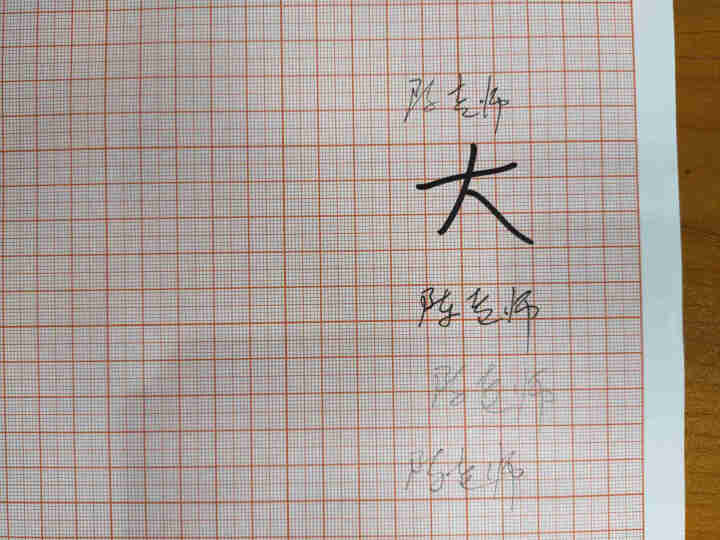 陈老师
大
陈老师
陈老师
陈老师